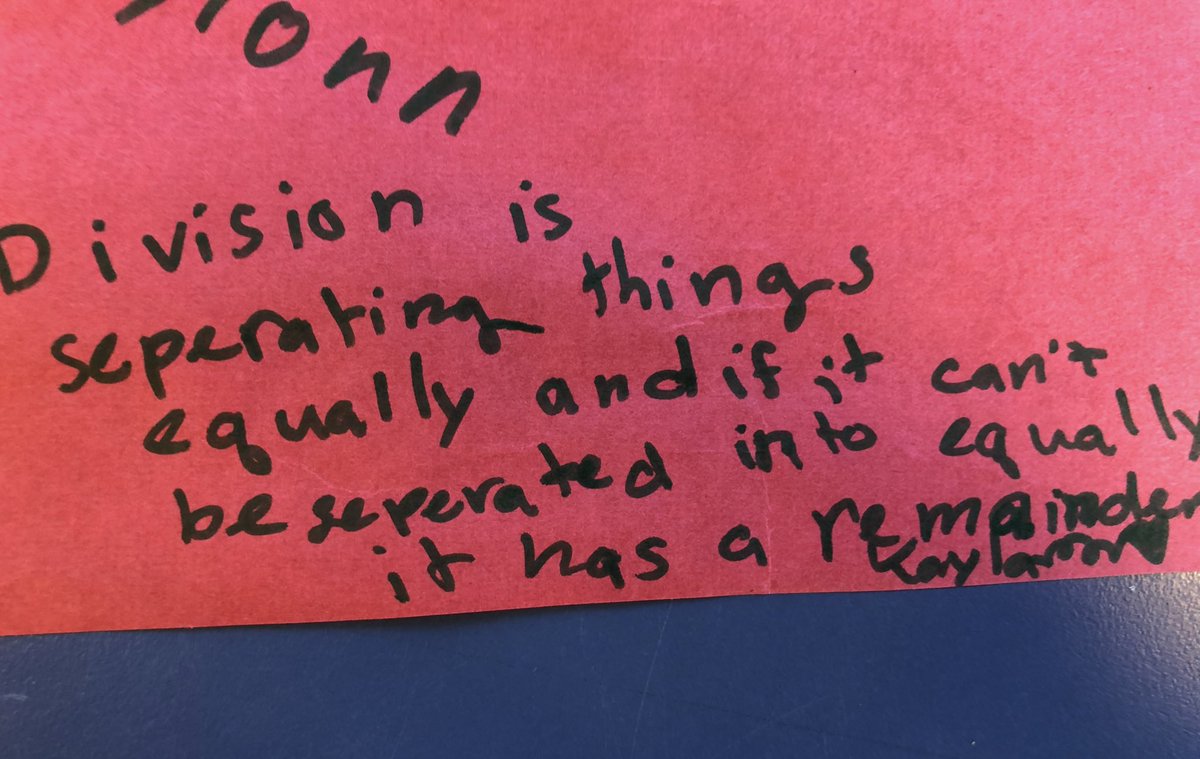 ionn
Division is
seperating things
equally and if it can't
be seperated in to equally
it has a remainder